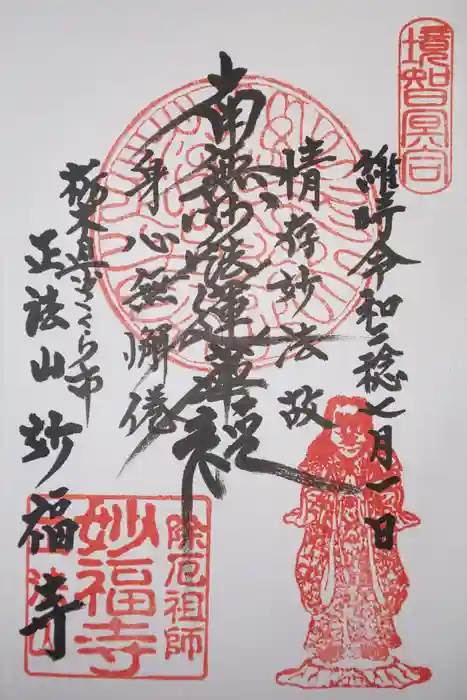 境智冥合
維時令和二稔七月一日
情存妙法故
南無妙法蓮華経
身心無懈倦
栃木県さくら市
正法山 妙福寺
除厄祖師
妙福寺
正法山